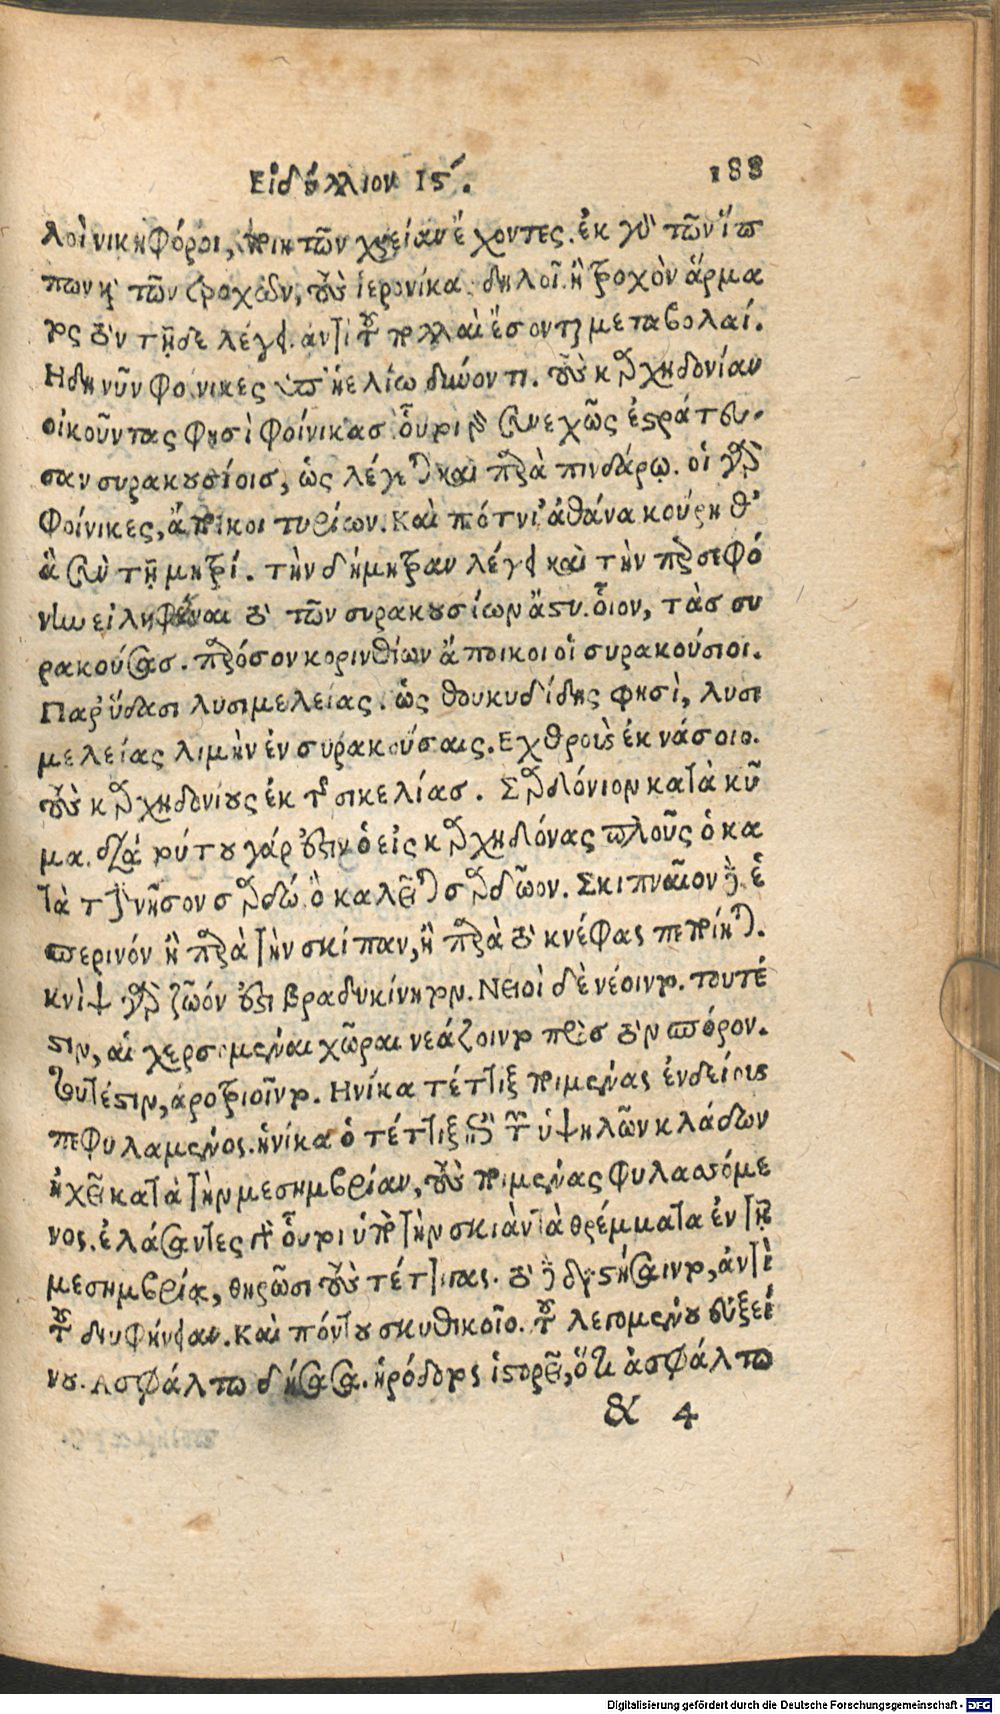 Εἰδύλλιον ΙϚ΄. 188
λοὶ νικηφόροι, τὴν τῶν χρείαν ἔχοντες. ἐκ γὸ τῶν ἵπ
πων καὶ τῶν τροχῶν, τοὺς ἱερονίκας δηλοῖ. ἢ τροχὸν ἅρμα
τος τὸν τῇδε λέγει. ἀντὶ τοῦ πολλαὶ ἔσονται μεταβολαί.
Ηδη νῦν φοίνικες ὑπ' ἠελίω δύνοντι. τοὺς καρχηδονίαν
οἰκοῦντας φησὶ φοίνικας οὗτοι γὰρ συνεχῶς ἐστράτευ-
σαν συρακουσίοις, ὡς λέγεται καὶ παρὰ πινδάρῳ. οἱ γὰρ
φοίνικες, ἄποικοι τυρίων. Καὶ πότνι' ἀθάνα κούρη θ'
ἃ σὺν τῇ μητρί. τὴν δήμητραν λέγει καὶ τὴν περσεφό
νην εἰληφέναι τὸ τῶν συρακουσίων ἄστυ. οἷον, τὰς συ
ρακούσας. παρόσον κορινθίων ἄποικοι οἱ συρακούσιοι.
Παρ' ὕδασι λυσιμελείας. ὡς θουκυδίδης φησὶ, λυσι
μελείας λιμὴν ἐν συρακούσαις. Εχθροὺς ἐκ νάσοιο.
τοὺς καρχηδονίους ἐκ τῆς σικελίας. Σαρδόνιον κατὰ κῦ
μα. διὰ τούτου γάρ ἐστιν ὁ εἰς καρχηδόνας πλοῦς ὁ κα
τὰ τὴν νῆσον σαρδώ. ὃ καλεῖται σαρδῶον. Σκιπναῖον τὸ ἑ
σπερινόν ἢ παρὰ τὴν σκίπαν, ἢ παρὰ τὸ κνέφας πεποίηται.
κνὶψ γὰρ ζῶόν ἐστι βραδυκίνητον. Νειοὶ δὲ νέοιντο. τουτέ
στιν, αἱ χερσομεναι χῶραι νεάζοιντο πρὸς τὸν σπόρον.
τουτέστιν, ἀροτριοῖντο. Ηνίκα τέττιξ ποιμένας ἐνδείους
πεφυλαμένος. ἡνίκα ὁ τέττιξ ἐπὶ τῶν ὑψηλῶν κλάδων
ἠχεῖ κατὰ τὴν μεσημβρίαν, τοὺς ποιμένας φυλασσόμε
νος. ἐλάσαντες γὰρ οὗτοι ὑπὸ τὴν σκιὰν τὰ θρέμματα ἐν τῇ
μεσημβρίᾳ, θηρῶσι τοὺς τέττιγας. τὸ δὲ διαστήσαιντο, ἀντὶ
τοῦ διυφήνειαν. Καὶ πόντου σκυθικοῖο. τοῦ λεγομένου εὐξεί
νου. Ασφάλτω δήσασα. ἡρόδοτος ἱστορεῖ, ὅτι ἀσφάλτω
& 4
Digitalisierung gefördert durch die Deutsche Forschungsgemeinschaft - DFG